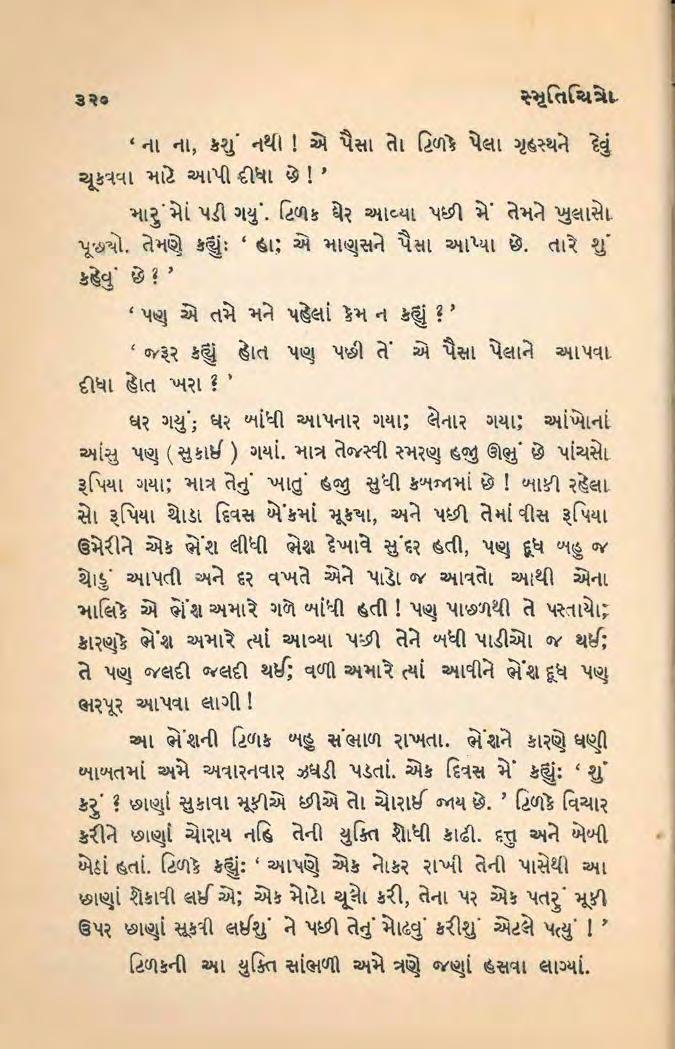 ૩૨૦ સ્મૃતિચિત્રો
‘ ના ના, કશું નથી ! એ પૈસા તો ટિળકે પેલા ગૃહસ્થને દેવું
ચૂકવવા માટે આપી દીધા છે ! ’
મારું મોં પડી ગયું. ટિળક ઘેર આવ્યા પછી મેં તેમને ખુલાસો
પૂછયો. તેમણે કહ્યુંઃ ‘ હા; એ માણસને પૈસા આપ્યા છે. તારે શું
કહેવું છે ? ’
‘ પણ એ તમે મને પહેલાં કેમ ન કહ્યું ? ’
‘ જરૂર કહ્યું હોત પણ પછી તેં એ પૈસા પેલાને આપવા
દીધા હોત ખરા ? ’
ઘર ગયું; ઘર બાંધી આપનાર ગયા; લેનાર ગયા; આંખોનાં
આંસુ પણ ( સુકાઈ ) ગયાં. માત્ર તેજસ્વી સ્મરણ હજી ઊભું છે પાંચસો
રૂપિયા ગયા; માત્ર તેનું ખાતું હજી સુધી કબજામાં છે ! બાકી રહેલા
સો રૂપિયા થોડા દિવસ બેંકમાં મૂક્યા, અને પછી તેમાં વીસ રૂપિયા
ઉમેરીને એક ભેંશ લીધી ભેશ દેખાવે સુંદર હતી, પણ દૂધ બહુ જ
થોડું આપતી અને દર વખતે એને પાડો જ આવતો આથી એના
માલિકે એ ભેંશ અમારે ગળે બાંધી હતી ! પણ પાછળથી તે પસ્તાયો;
કારણકે ભેંશ અમારે ત્યાં આવ્યા પછી તેને બધી પાડીઓ જ થઈ;
તે પણ જલદી જલદી થઈ; વળી અમારે ત્યાં આવીને ભેંશ દૂધ પણ
ભરપૂર આપવા લાગી !
આ ભેંશની ટિળક બહુ સંભાળ રાખતા. ભેંશને કારણે ઘણી
બાબતમાં અમે અવારનવાર ઝઘડી પડતાં. એક દિવસ મેં કહ્યુંઃ ‘ શું
કરું ? છાણાં સુકાવા મૂકીએ છીએ તો ચોરાઈ જાય છે. ’ ટિળકે વિચાર
કરીને છાણાં ચોરાય નહિ તેની યુક્તિ શોધી કાઢી. દત્તુ અને બેબી
બેઠાં હતાં. ટિળકે કહ્યુંઃ ‘ આપણે એક નોકર રાખી તેની પાસેથી આ
છાણાં શેકાવી લઈ એ; એક મોટો ચૂલો કરી, તેના પર એક પતરું મૂકી
ઉપર છાણાં સૂકવી લઈશું ને પછી તેનું મોઢવું કરીશું એટલે પત્યું ! ’
ટિળકની આ યુક્તિ સાંભળી અમે ત્રણે જણાં હસવા લાગ્યાં.